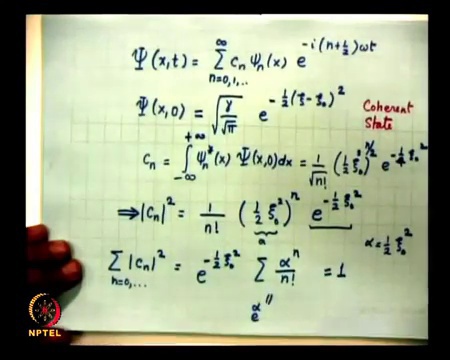 Ψ(x,t) = Σ_{n=0,1,..}^{∞} c_n ψ_n(x) e^{-i(n+½)ωt}
Ψ(x,0) = √(γ/√π) e^{-½(ξ-ξ₀)²} Coherent State
c_n = ∫_{-∞}^{+∞} ψ_n*(x) Ψ(x,0)dx = 1/√n! (½ξ₀²)^{n/2} e^{-¼ξ₀²}
⇒|c_n|² = 1/n! (½ξ₀²)^n e^{-½ξ₀²}
α α = ½ξ₀²
Σ_{n=0,...} |c_n|² = e^{-½ξ₀²} Σ αⁿ/n! = 1
e^α "
NPTEL